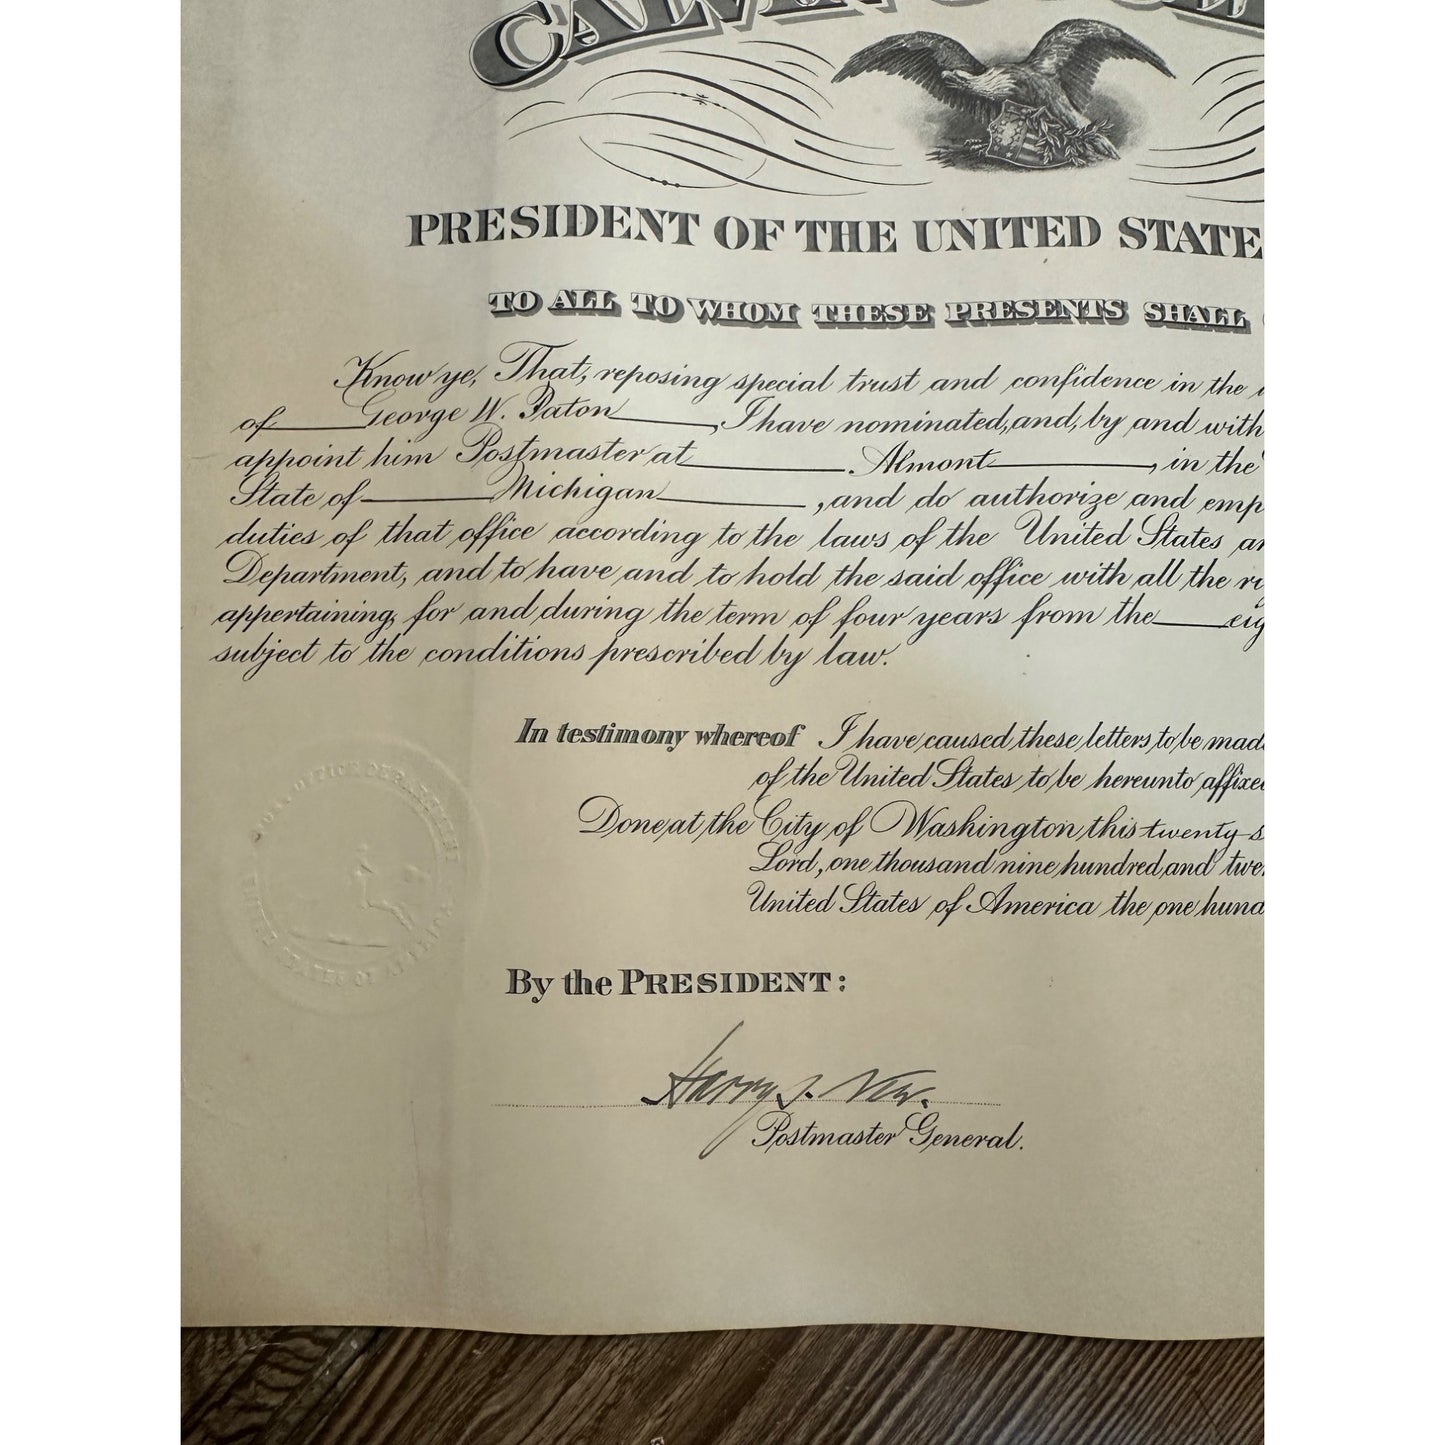 CALVIN
PRESIDENT OF THE UNITED STATE
TO ALL TO WHOM THESE PRESENTS SHALL
Know ye, That, reposing special trust and confidence in the
of George W. Paton, I have nominated, and, by and with
appoint him Postmaster at Almont, in the
State of Michigan, and do authorize and emp
duties of that office according to the laws of the United States an
Department, and to have and to hold the said office with all the ri
appertaining, for and during the term of four years from the eig
subject to the conditions prescribed by law.
In testimony whereof I have caused these letters to be mad
of the United States to be hereunto affixe
Done at the City of Washington this twenty-s
Lord, one thousand nine hundred and twe
United States of America the one hund
POST OFFICE DEPARTMENT
UNITED STATES OF AMERICA
By the PRESIDENT:
Harry S. New.
Postmaster General.